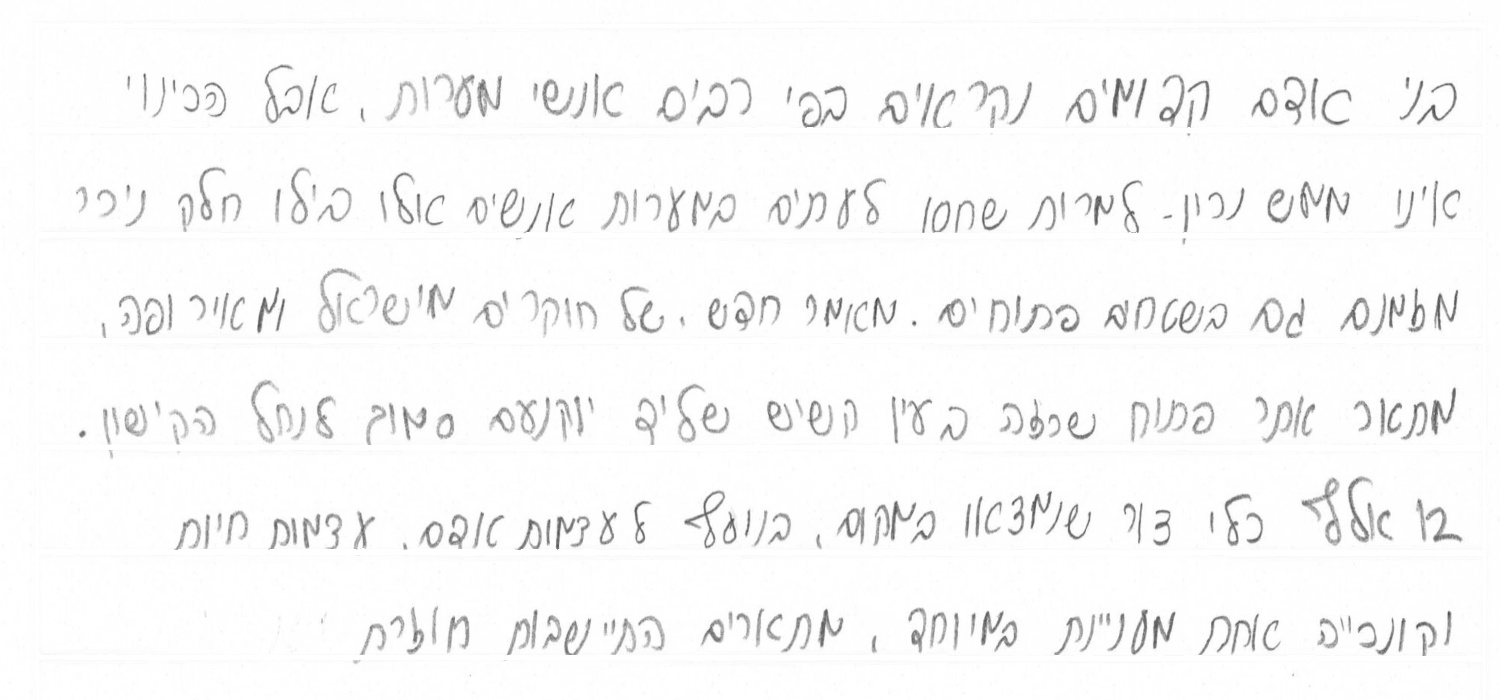 בני אדם קדומים נקראים בפי רבים אנשי מערות, אבל הכינוי
אינו ממש נכון- למרות שחסו לעתים במערות אנשים אלו בילו חלק ניכר
מזמנם גם בשטחים פתוחים. מאמר חדש, של חוקרים מישראל ומאירופה,
מתאר אתר פתוח שכזה בעין קשיש שליד יוקנעם סמוך לנחל הקישון.
12 אלף כלי צור שנמצאו במקום, בנוסף לעצמות אדם, עצמות חיות
וקונכייה אחת מעניינת במיוחד, מתארים התיישבות חוזרת